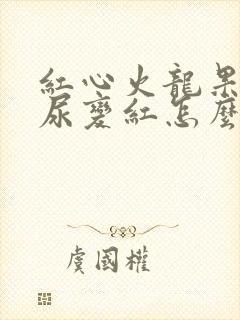 紅心火龍果
尿變紅怎麼
虞國權